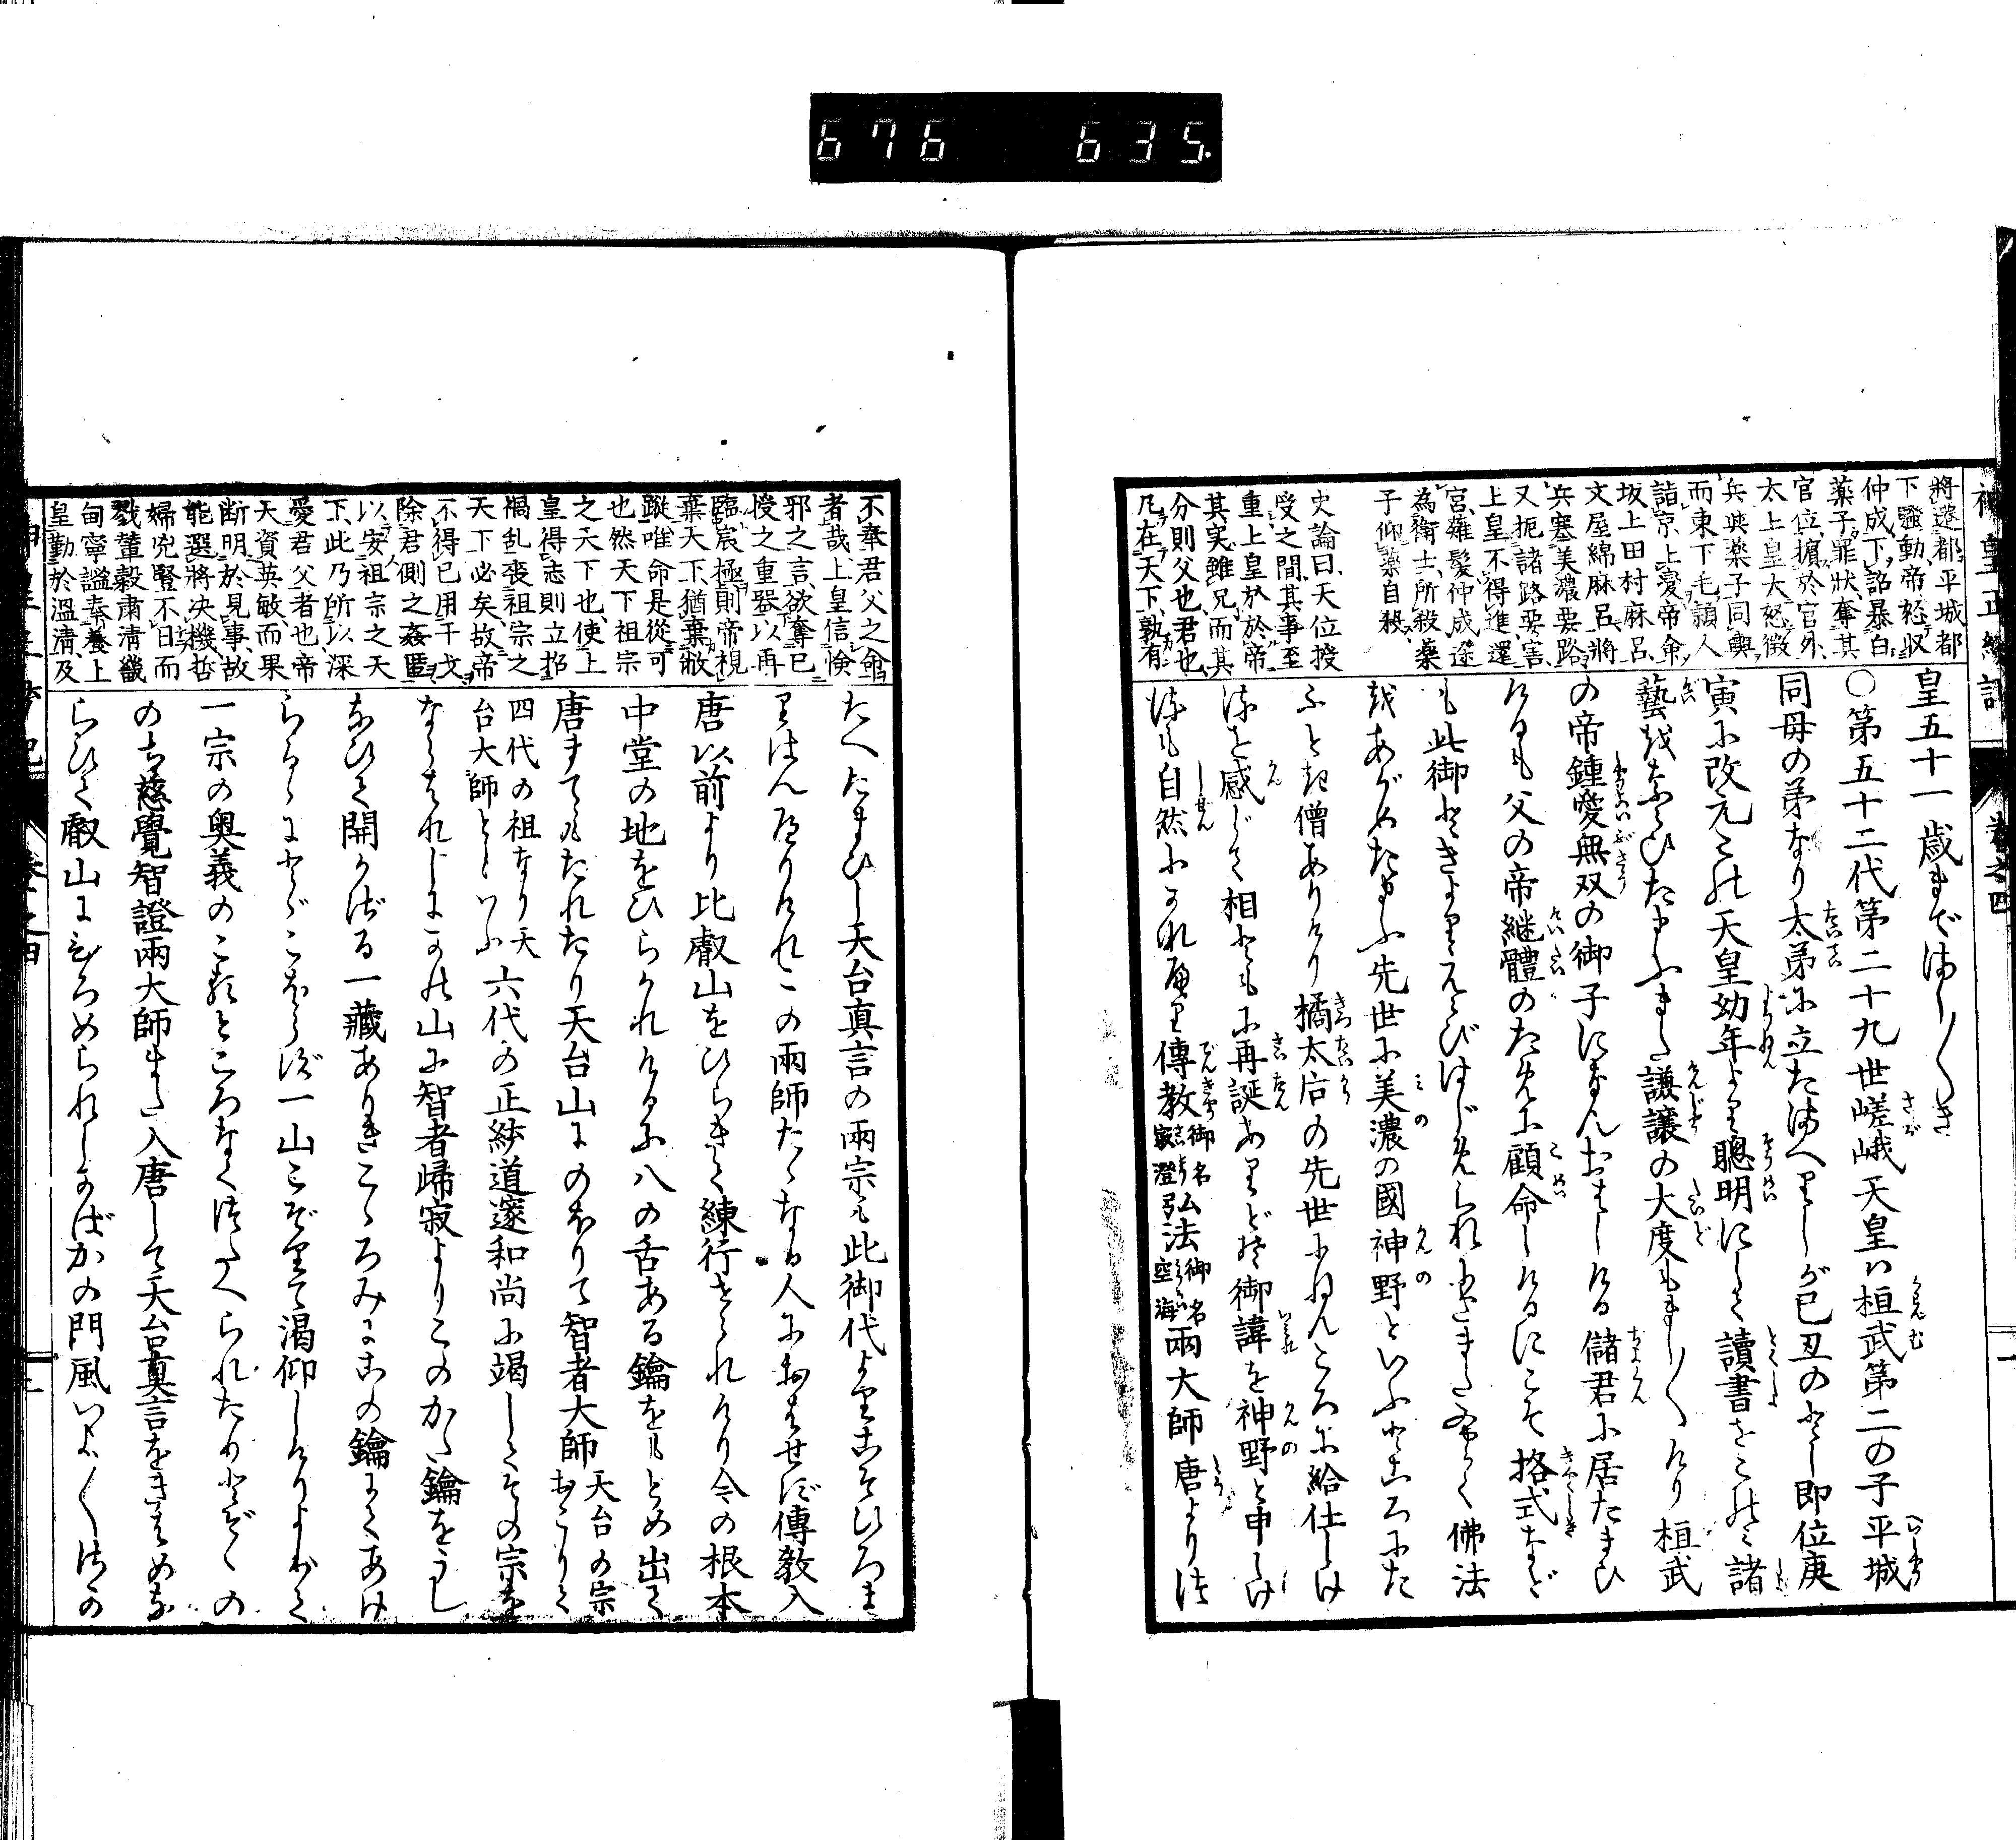 676 635.
神皇正統記 卷之四
將遷都平城都
下騷動、帝怒収
仲成、下詔暴白
薬子罪狀、奪其
官位、擯於官外、
太上皇大怒徴
兵與薬子同輿
而東、下毛頴人
詣京上憂、帝命
坂上田村麻呂、
文屋綿麻呂、將
兵塞美濃要路
又扼諸路要害、
上皇不得進還
宮薙髮、仲成遂
為衛士所殺、薬
子仰藥自殺、
史論曰、天位授
受之間、其事至
重、上皇於帝
其実雖兄、而其
分則父也、君也
凡在天下、孰有
皇五十一歳までましましき
〇第五十二代第二十九世嵯峨天皇ハ桓武第二の子平城
同母の弟なり太弟に立たまへりしが己丑のとし即位庚
寅に改元この天皇幼年より聰明にして讀書をこのミ諸
藝をならひたまふまた謙讓の大度もましましけり桓武
の帝鍾愛無双の御子になんおはしける儲君に居たまひ
けるも父の帝継體のために顧命しけるにこそ格式など
も此御ときよりえらびはじめられにきまた深く佛法
をあがめたまふ先世に美濃の國神野といふところにた
ふとき僧ありけり橘太后の先世にねんころに給仕しけ
るを感じて相ともに再誕ありとぞ御諱を神野と申しけ
るも自然にかなへり傳教御名最澄弘法御名空海兩大師唐よりつ
不奉君父之命
者哉、上皇信憸
邪之言、欲奪已
授之重器、以再
臨宸極、則帝視
棄天下、猶棄敝
蹝、唯命是從可
也、然天下祖宗
之天下也、使上
皇得志則立招
禍乱、喪祖宗之
天下必矣、故帝
不得已用干戈
除君側之姦匿
以安祖宗之天
下、此乃所以深
愛君父者也、帝
天資英敏、而果
断明於見事、故
能選將决機、哲
婦兇豎不日而
戮、輦轂肅清、畿
甸寧謐、奉養上
皇、勤於溫凊、及
たへたまひし天台真言の兩宗も此御代よりこそひろま
りはんべりけれこの兩師たゝなる人におはせず傳教入
唐以前より比叡山をひらきて練行せられけり今の根本
中堂の地をひらかれけるに八の舌ある鑰をもとめ出て
唐までもたれたり天台山にのぼりて智者大師天台の宗おこりて
四代の祖なり天台大師ともいふ六代の正統道邃和尚に謁してその宗を
ならはれしにかの山に智者歸寂よりこのかた鑰をうし
なひて開かざる一藏ありきこゝろみにこの鑰にてあけ
らるゝにとゞこほらず一山こぞりて渇仰しけりよりて
一宗の奥義のこるところなくつたへられたりとぞその
のち慈覺智證兩大師また入唐して天台真言をきはめな
らひて叡山にひろめられしかばかの門風いよいよさか